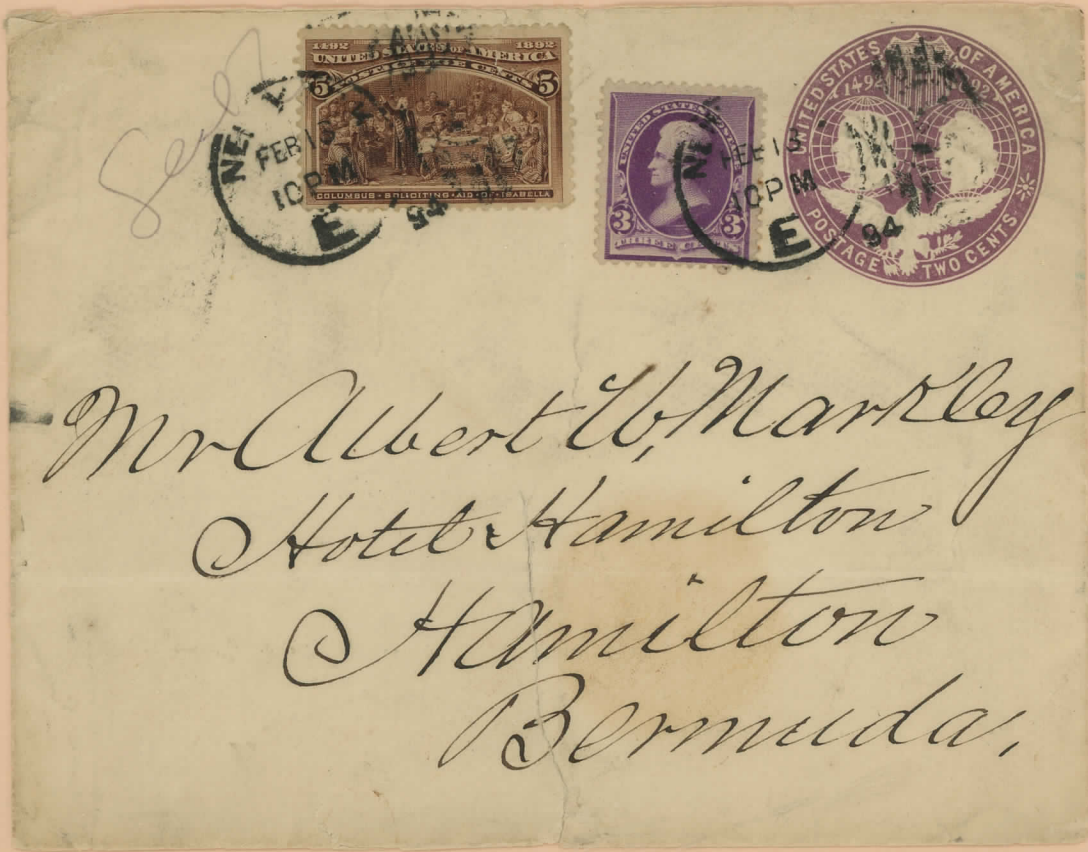 Seal
1492 1892
UNITED STATES OF AMERICA
POSTAGE FIVE CENTS
5 5
COLUMBUS SOLICITING AID OF ISABELLA
NEW
FEB 13
10 PM
E
94
UNITED STATES
3 3
THREE CENTS
NEW
FEB 13
10 PM
E
94
UNITED STATES OF AMERICA
1492 1892
POSTAGE TWO CENTS
Mr Albert W. Markley
Hotel Hamilton
Hamilton
Bermuda,